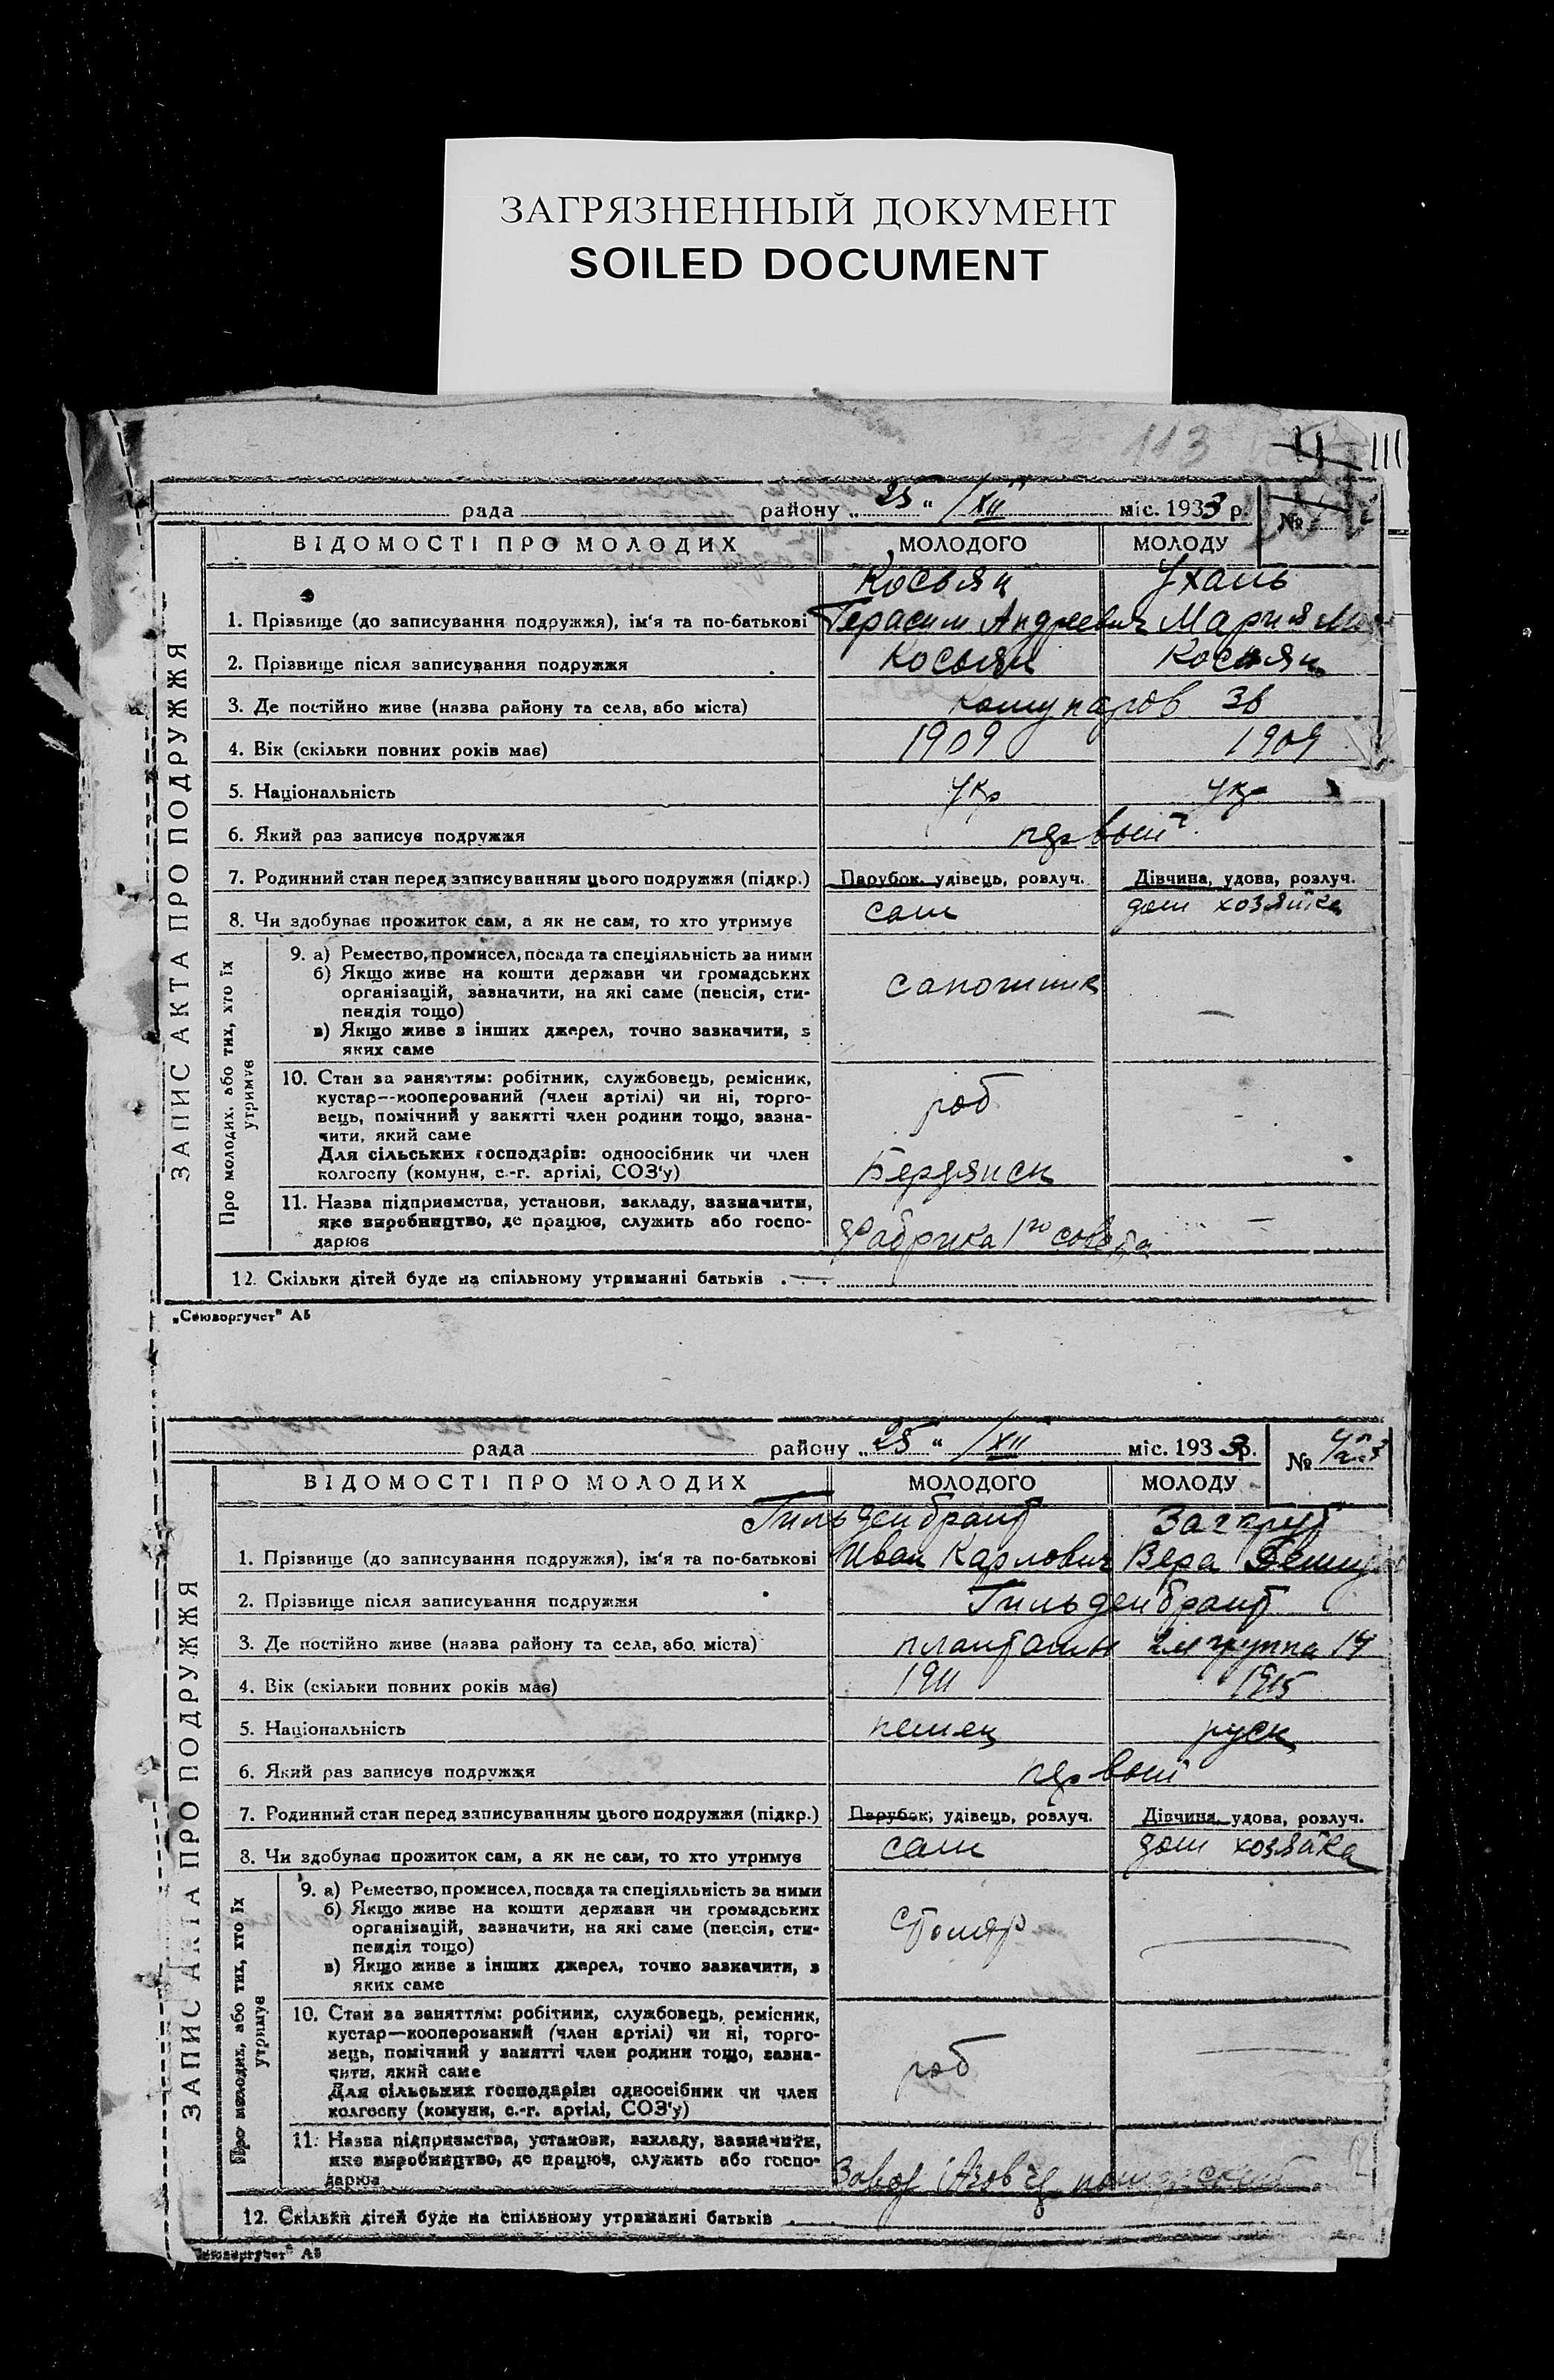 ЗАГРЯЗНЕННЫЙ ДОКУМЕНТ
SOILED DOCUMENT
113 111
рада району „25“ /XII міс. 1933 р. №
ЗАПИС АКТА ПРО ПОДРУЖЖЯ
ВІДОМОСТІ ПРО МОЛОДИХ МОЛОДОГО МОЛОДУ
Косьян Ухань
1. Прізвище (до записування подружжя), ім‘я та по-батькові Герасим Андреевич Мария
2. Прізвище після записування подружжя Косьян Косьян
3. Де постійно живе (назва району та села, або міста) Комунаров 36
4. Вік (скільки повних років має) 1909 1909
5. Національність укр укр
6. Який раз записує подружжя первый
7. Родинний стан перед записуванням цього подружжя (підкр.) Парубок, удівець, розлуч. Дівчина, удова, розлуч.
8. Чи здобуває прожиток сам, а як не сам, то хто утримує сам дом хозяйка
Про молодих, або тих, хто їх утримує
9. а) Ремество, промисел, посада та спеціяльність за ними
б) Якщо живе на кошти держави чи громадських
організацій, зазначити, на які саме (пенсія, сти-
пендія тощо) сапожник —
в) Якщо живе з інших джерел, точно зазначити, з
яких саме
10. Стан за заняттям: робітник, службовець, ремісник,
кустар--кооперований (член артілі) чи ні, торго-
вець, помічний у занятті член родини тощо, зазна- роб -
чити, який саме
Для сільських господарів: одноосібник чи член
колгоспу (комуни, с.-г. артілі, СОЗ‘у) Бердянск
11. Назва підприємства, установи, закладу, зазначити,
яке виробництво, де працює, служить або госпо- —
дарює Фабрика 1го совета
12. Скільки дітей буде на спільному утриманні батьків . — .
„Союзоргучет” А5
рада району „25“ /XII міс. 1933р. №
ЗАПИС АКТА ПРО ПОДРУЖЖЯ
ВІДОМОСТІ ПРО МОЛОДИХ МОЛОДОГО МОЛОДУ
Гильденбрант
1. Прізвище (до записування подружжя), ім‘я та по-батькові Иван Карлович Вера
2. Прізвище після записування подружжя Гильденбрант
3. Де постійно живе (назва району та села, або міста) группа 14
4. Вік (скільки повних років має) 1911 1915
5. Національність немец руск
6. Який раз записує подружжя первый
7. Родинний стан перед записуванням цього подружжя (підкр.) Парубок, удівець, розлуч. Дівчина, удова, розлуч.
8. Чи здобуває прожиток сам, а як не сам, то хто утримує сам дом хозяйка
Про молодих, або тих, хто їх утримує
9. а) Ремество, промисел, посада та спеціяльність за ними
б) Якщо живе на кошти держави чи громадських
організацій, зазначити, на які саме (пенсія, сти- столяр
пендія тощо)
в) Якщо живе з інших джерел, точно зазначити, з
яких саме
10. Стан за заняттям: робітник, службовець, ремісник,
кустар—кооперований (член артілі) чи ні, торго-
вець, помічний у занятті член родини тощо, зазна-
чити, який саме роб
Для сільських господарів: одноосібник чи член
колгоспу (комуни, с.-г. артілі, СОЗ‘у)
11. Назва підприємства, установи, закладу, зазначити,
яке виробництво, де працює, служить або госпо-
дарює Завод
12. Скільки дітей буде на спільному утриманні батьків
„Союзоргучет” А5